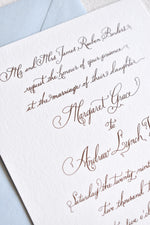 Mr. and Mrs. James
request the honour of your presence
at the marriage of their daughter
Margaret Grace
to
Andrew
Saturday the twenty
two thousand